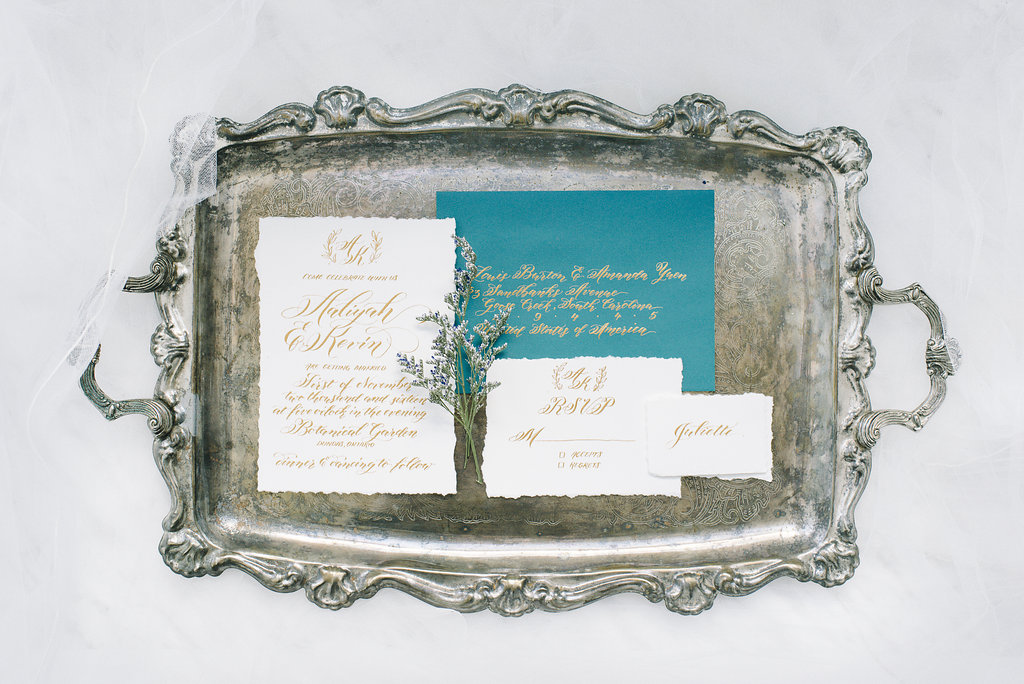 A
K
COME CELEBRATE WITH US
Aaliyah
& Kevin
ARE GETTING MARRIED
First of November
two thousand and sixteen
at five o'clock in the evening
Botanical Garden
DUNDAS, ONTARIO
dinner & dancing to follow
Louis Burton & Amanda Yuen
Sandbanks Avenue
Goose Creek, South Carolina
9 4 4 5
United States of America
A
K
RSVP
M
ACCEPTS
REGRETS
Juliette